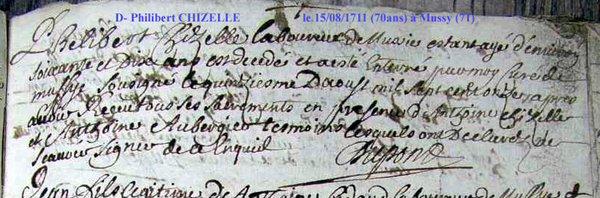 D- Philibert CHIZELLE le 15/08/1711 (70ans) à Mussy (71)
Philibert Chizelle laboureur de Mussie estant agé d'environ
soixante et Dix ans est decedé et a esté Enterré par moy Curé de
mussye soussigné le quinzieme Daoust mil sept cent onze apres
avoir Receu tous ses sacremento en presence d'Antoine chizelle
et Antoine Aubergier temoins lesquels ont Declaré ne
scavoir signer de ce Enquis
Dupond